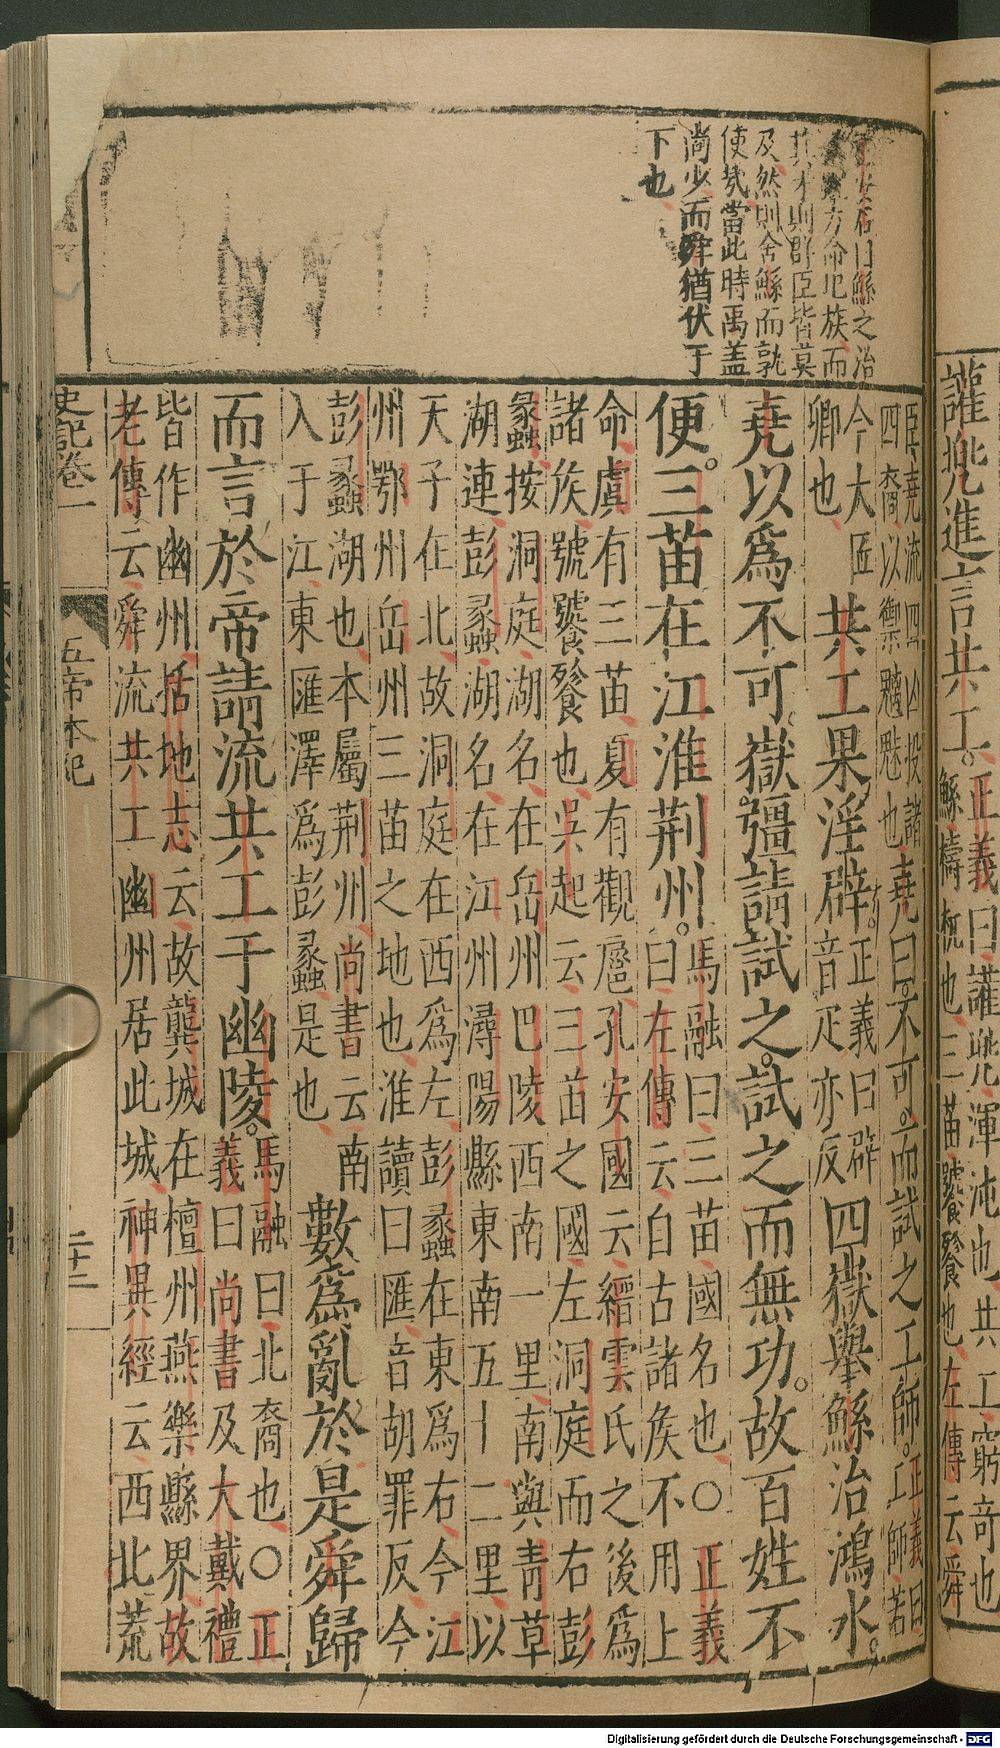 讙兠進言共工。正義曰讙兠渾沌也共工窮奇也
鯀檮杌也三苗饕餮也左傳云舜
王安石曰鯀之治
方命圮族而
其才則群臣皆莫
及然則舍鯀而孰
使㢤當此時禹盖
尚少而舜猶伏于
下也
臣堯流四凶投諸
四裔以禦魑魅也
堯曰。不可。而試之工師。正義曰
工師若
今大匠
卿也
共工果淫辟。正義曰辟
音疋亦反
四嶽舉鯀治鴻水。
堯以爲不可。嶽彊請試之。試之而無功。故百姓不
便。三苗在江淮荆州。馬融曰三苗國名也○正義
曰左傳云自古諸矦不用上
命虞有三苗夏有觀扈孔安國云縉雲氏之後爲
諸矦號饕餮也吳起云三苗之國左洞庭而右彭
蠡按洞庭湖名在岳州巴陵西南一里南與青草
湖連彭蠡湖名在江州潯陽縣東南五十二里以
天子在北故洞庭在西爲左彭蠡在東爲右今江
州鄂州岳州三苗之地也淮讀曰匯音胡罪反今
彭蠡湖也本屬荆州尚書云南
入于江東匯澤爲彭蠡是也
數爲亂於是舜歸
而言於帝請流共工于幽陵。馬融曰北裔也○正
義曰尚書及大戴禮
皆作幽州括地志云故龔城在檀州燕樂縣界故
老傳云舜流共工幽州居此城神異經云西北荒
史記卷一
五帝本紀
二十二
Digitalisierung gefördert durch die Deutsche Forschungsgemeinschaft - DFG